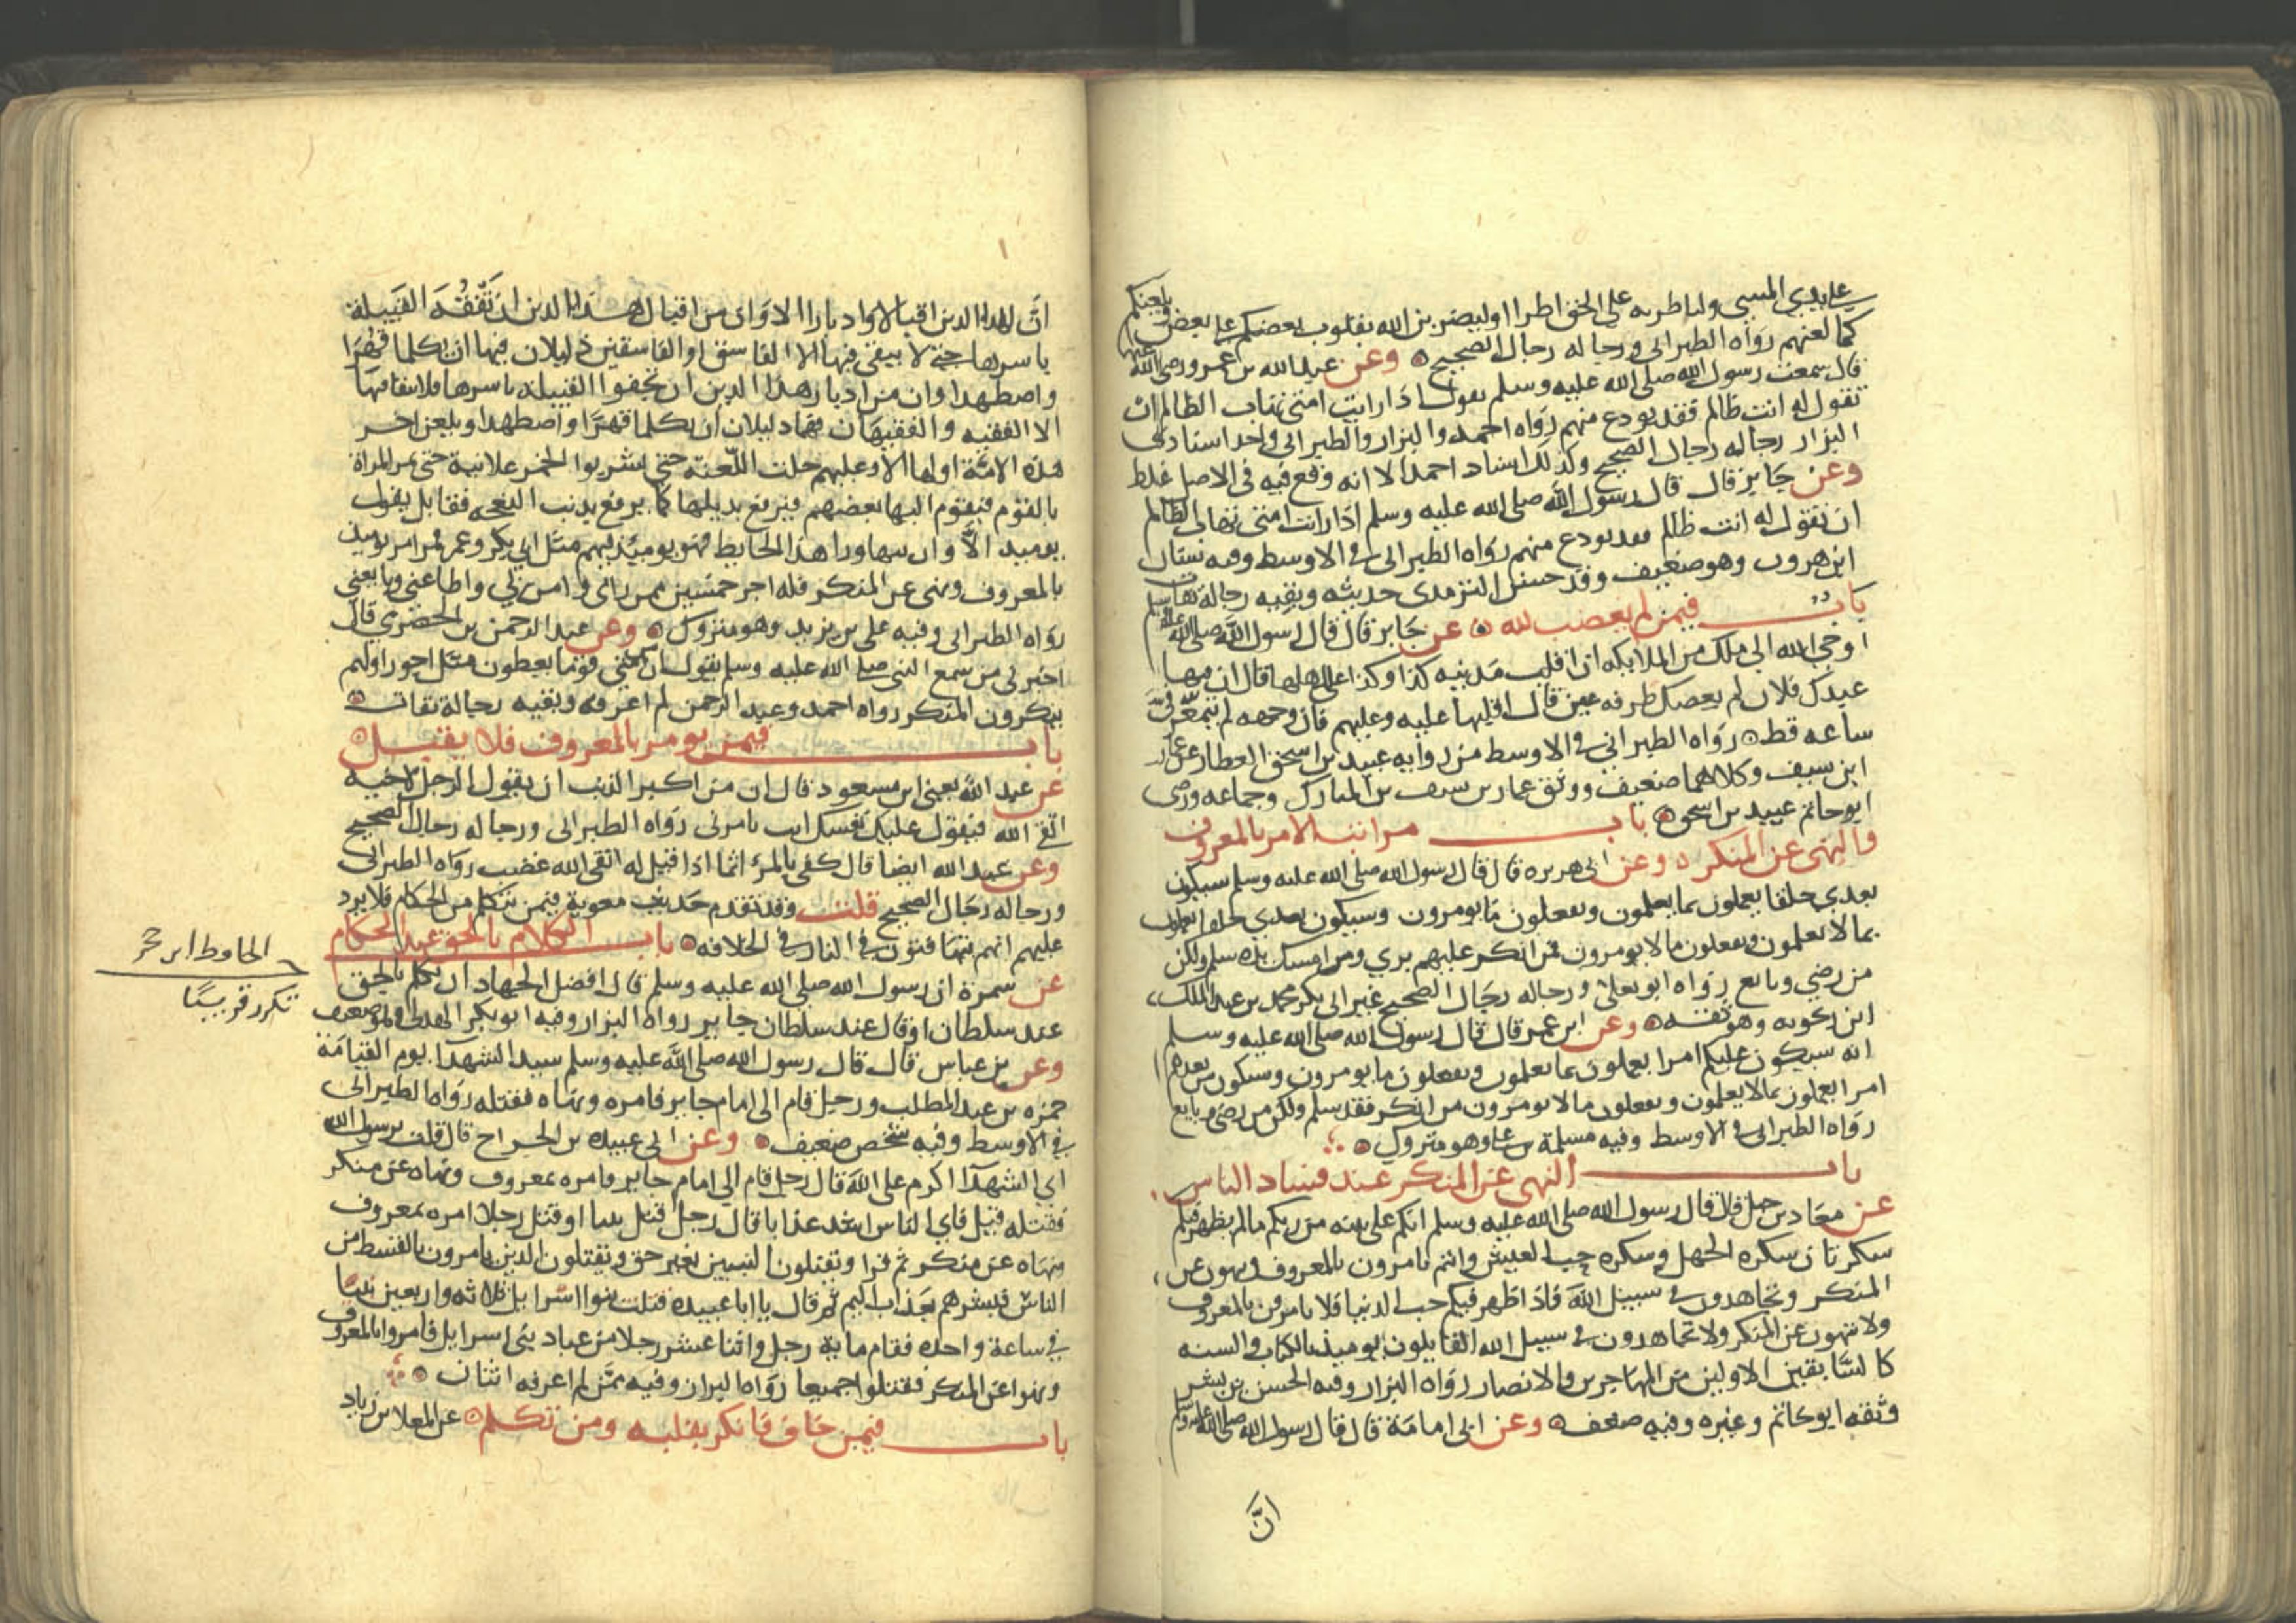 على يدي المسيء ولتاطرنه على الحق اطرا او ليضربن الله بقلوب بعضكم على بعض ويلعنكم
كما لعنهم رواه الطبراني ورجاله رجال الصحيح وعن عبد الله بن عمرو رضي الله عنهما
قال سمعت رسول الله صلى الله عليه وسلم يقول اذا رايت امتي تهاب الظالم ان
تقول له انت ظالم فقد تودع منهم رواه احمد والبزار والطبراني واحد اسنادي
البزار رجاله رجال الصحيح وكذلك اسناد احمد الا انه وقع فيه في الاصل غلط
وعن جابر قال قال رسول الله صلى الله عليه وسلم اذا رايت امتي تهاب الظالم
ان تقول له انت ظالم فقد تودع منهم رواه الطبراني في الاوسط وفيه سنان
ابن هرون وهو ضعيف وقد حسن الترمذي حديثه وبقيه رجاله ثقات
باب فيمن لم يغضب لله عن جابر قال قال رسول الله صلى الله عليه وسلم
اوحى الله الى ملك من الملايكه ان اقلب مدينه كذا وكذا على اهلها قال ان فيها
عبدك فلان لم يعصك طرفه عين قال اقلبها عليه وعليهم فان وجهه لم يتمعر في
ساعه قط رواه الطبراني في الاوسط من روايه عبيد بن اسحق العطار عن عمار
ابن سيف وكلاهما ضعيف ووثق عمار بن سيف بن المبارك وجماعه ورضي
ابو حاتم عبيد بن اسحق باب مراتب الامر بالمعروف
والنهي عن المنكر وعن ابي هريره قال قال رسول الله صلى الله عليه وسلم سيكون
بعدي خلفا يعملون بما يعلمون ويفعلون ما يومرون وسيكون بعدي خلفا يعملون
بما لا يعلمون ويفعلون ما لا يومرون فمن انكر عليهم بري ومن امسك يده سلم ولكن
من رضي وتابع رواه ابو يعلى ورجاله رجال الصحيح غير ابي بكر محمد بن عبد الملك
ابن زنجويه وهو ثقه وعن ابن عمر قال قال رسول الله صلى الله عليه وسلم
انه سيكون عليكم امرا يعملون بما يعلمون ويفعلون ما يومرون وسيكون من بعدهم
امرا يعملون بما لا يعلمون ويفعلون ما لا يومرون من انكر فقد سلم ولكن من رضي وتابع
رواه الطبراني في الاوسط وفيه مسلمة بن علي وهو متروك
باب النهي عن المنكر عند فساد الناس
عن معاذ بن جبل قال قال رسول الله صلى الله عليه وسلم انكم على بينه من ربكم ما لم يظهر فيكم
سكرتان سكره الجهل وسكره حب العيش وانتم تامرون بالمعروف وتنهون عن
المنكر وتجاهدون في سبيل الله فاذا ظهر فيكم حب الدنيا فلا تامرون بالمعروف
ولا تنهون عن المنكر ولا تجاهدون في سبيل الله القايلون يوميذ بالكتاب والسنه
كالسابقين الاولين من المهاجرين والانصار رواه البزار وفيه الحسن بن بشر
وثقه ابو حاتم وغيره وفيه ضعف وعن ابي امامة قال قال رسول الله صلى الله عليه وسلم
ان
ان لهذا الدين اقبالا وادبارا الا وان من اقبال هذا الدين ان تفقه القبيلة
باسرها حتى لا يبقى فيها الا الفاسق او الفاسقين ذليلان فيها ان تكلما قهرا
واضطهدا وان من ادبار هذا الدين ان تجفوا القبيلة باسرها فلا يبقا فيها
الا الفقيه والفقيهان فهما ذليلان ان تكلما قهرا واضطهدا ويلعن اخر
هذه الامة اولها الا وعليهم حلت اللعنة حتى يشربوا الخمر علانية حتى تمر المراة
بالقوم فيقوم اليها بعضهم فيرفع بذيلها كما يرفع بذنب النعجه فقايل يقول
يوميد الا وارها ورا هذا الحايط فهو يوميذ فيهم مثل ابي بكر وعمر فمن امر يوميذ
بالمعروف ونهى عن المنكر فله اجر خمسين ممن راني وامن بي واطاعني وبايعني
رواه الطبراني وفيه علي بن يزيد وهو متروك وعن عبد الرحمن بن الحضرمي قال
اخبرني من سمع النبي صلى الله عليه وسلم يقول ان من امتي قوما يعطون مثل اجور اولهم
ينكرون المنكر رواه احمد وعبد الرحمن لم اعرفه وبقيه رجاله ثقات
باب فيمن يومر بالمعروف فلا يقبل
عن عبد الله يعني ابن مسعود قال ان من اكبر الذنب ان يقول الرجل لاخيه
اتق الله فيقول عليك نفسك انت تامرني رواه الطبراني ورجاله رجال الصحيح
وعن عبد الله ايضا قال كفى بالمرء اثما اذا قيل له اتقى الله غضب رواه الطبراني
ورجاله رجال الصحيح قلت وقد تقدم حديث معوية فيمن تتكلم من الحكام فلا يرد
عليهم انهم يتهافتون في النار في الخلافه باب الكلام بالحق عند الحكام
عن سمرة ان رسول الله صلى الله عليه وسلم قال افضل الجهاد ان تكلم بالحق
عند سلطان او قال عند سلطان جاير رواه البزار وفيه ابو بكر الهذلي وهو ضعيف
وعن بن عباس قال قال رسول الله صلى الله عليه وسلم سيد الشهدا يوم القيامة
حمزه بن عبد المطلب ورجل قام الى امام جاير فامره ونهاه فقتله رواه الطبراني
في الاوسط وفيه شخص ضعيف وعن ابي عبيده بن الجراح قال قلت يرسول الله
اي الشهدا اكرم على الله قال رجل قام الى امام جاير فامره بمعروف ونهاه عن منكر
فقتله قيل فاي الناس اشد عذابا قال رجل قتل نبيا او قتل رجلا امره بمعروف
ونهاه عن منكر ثم قرا ويقتلون النبيين بغير حق ويقتلون الذين يامرون بالقسط من
الناس فبشرهم بعذاب اليم ثم قال يا ابا عبيده قتلت بنوا اسرايل ثلاثه واربعين نبيا
في ساعة واحده فقام ماية رجل واثنا عشر رجلا من عباد بني اسرايل فامروا بالمعروف
ونهوا عن المنكر فقتلوا جميعا رواه البزار وفيه ممن لم اعرفه اثنان
باب فيمن خاف فانكر بقلبه ومن تكلم عن المعلا بن زياد
الحافظ ابن حجر
تكرر قريبا